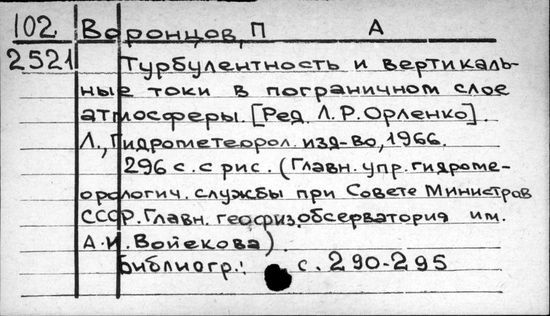 102 Воронцов, П А
2521 Турбулентность и вертикаль-
ные токи в пограничном слое
атмосферы. [Ред. Л.Р.Орленко].
Л., Гидрометеорол. изд-во, 1966.
296 с. с рис. (Главн. упр. гидроме-
орологич. службы при Совете Министров
СССР. Главн. геофиз. обсерватория им.
А.И. Войекова)
Библиогр.: с. 290-295